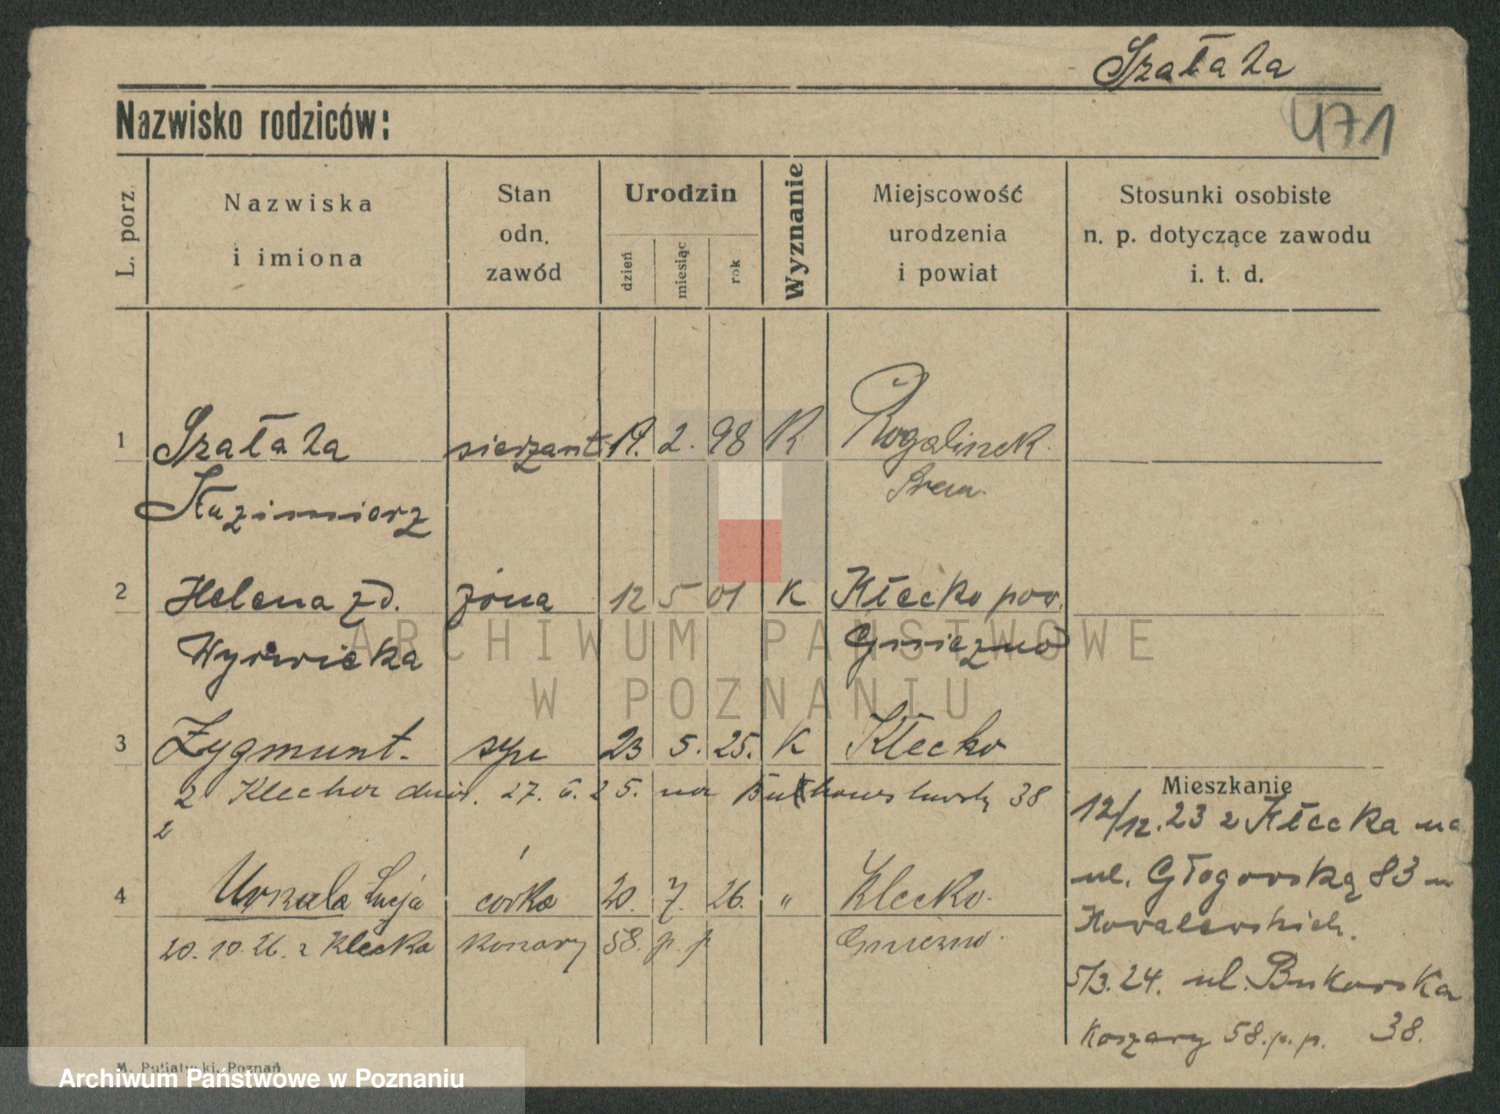 Szałata
Nazwisko rodziców:
471
L. porz.
Nazwiska
i imiona
Stan
odn.
zawód
Urodzin
dzień
miesiąc
rok
Wyznanie
Miejscowość
urodzenia
i powiat
Stosunki osobiste
n. p. dotyczące zawodu
i. t. d.
1 Szałata sierżant 19. 2. 98 K Rogalinek.
Kazimierz Srem.
2 Helena zd. żona 12 5 01 K Kłecko pow.
Wyrwicka Gniezno
3 Zygmunt. syn 23 5. 25. K Kłecko
z Klecka dnia. 27. 6. 25. na Bukowską 38
Mieszkanie
12/12. 23 z Kłecka na
ul. Głogowską 83 u
Kowalewskich.
5/3. 24. ul. Bukowska
Koszary 58. p. p. 38.
4 Urszula Łucja córka 20. 7. 26. " Klecko.
20. 10. 26. z Klecka koszary 58. p. p Gniezno.
ARCHIWUM PAŃSTWOWE
W POZNANIU
Poznań
Archiwum Państwowe w Poznaniu